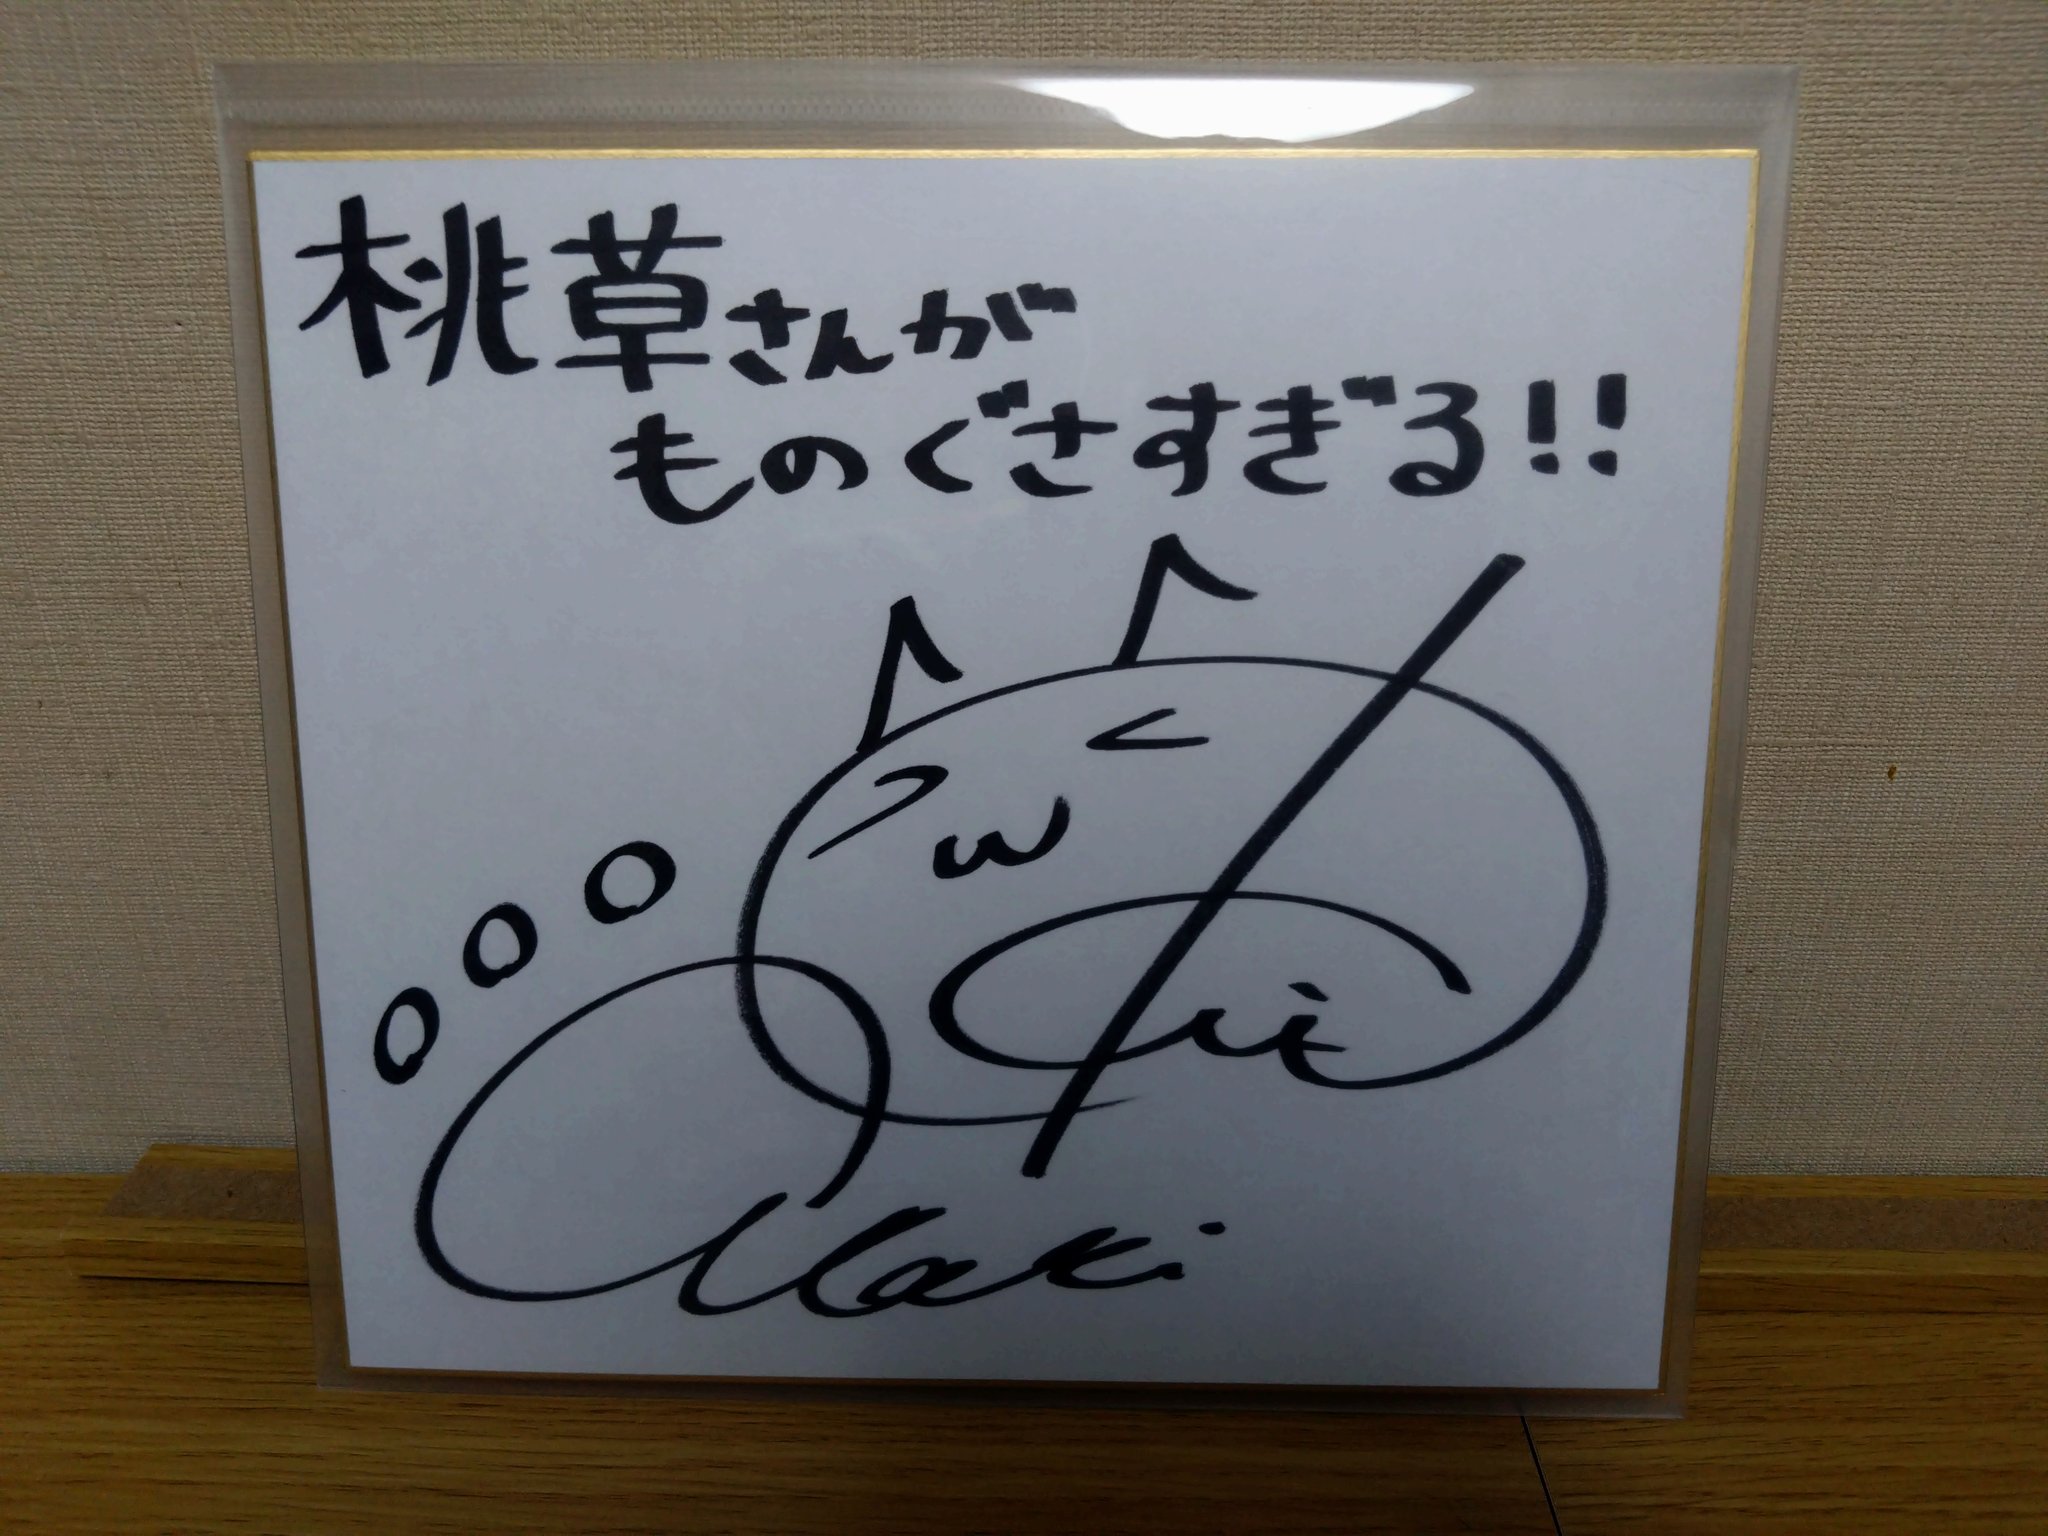 桃草さんが
ものぐさすぎる!!
Maki